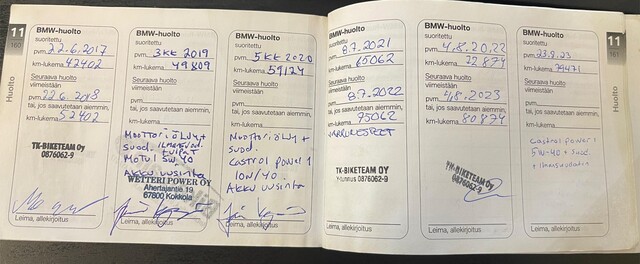 11
160
Huolto
BMW-huolto
suoritettu
pvm. 22.6.2017
km-lukema 42402
Seuraava huolto
viimeistään
pvm. 22.6.2018
tai, jos saavutetaan aiemmin,
km-lukema 52402
TK-BIKETEAM Oy
0876062-9
Leima, allekirjoitus
BMW-huolto
suoritettu
pvm. 3KK 2019
km-lukema 49809
Seuraava huolto
viimeistään
pvm.
tai, jos saavutetaan aiemmin,
km-lukema
Moottoriöljy+
suod.
Motul 5W-40
Akku uusittu
WETTERI POWER OY
Ahertajantie 19
67800 Kokkola
Leima, allekirjoitus
BMW-huolto
suoritettu
pvm. 5KK 2020
km-lukema 59124
Seuraava huolto
viimeistään
pvm.
tai, jos saavutetaan aiemmin,
km-lukema
Moottoriöljy+
suod.
Castrol Power 1
10W/40
Akku uusittu
Leima, allekirjoitus
BMW-huolto
suoritettu
pvm. 8.7.2021
km-lukema 65062
Seuraava huolto
viimeistään
pvm. 8.7.2022
tai, jos saavutetaan aiemmin,
km-lukema 75062
TK-BIKETEAM Oy
0876062-9
Leima, allekirjoitus
BMW-huolto
suoritettu
pvm. 4.8.2022
km-lukema 72874
Seuraava huolto
viimeistään
pvm. 4.8.2023
tai, jos saavutetaan aiemmin,
km-lukema 80874
TK-BIKETEAM Oy
0876062-9
Leima, allekirjoitus
BMW-huolto
suoritettu
pvm. 23.9.23
km-lukema 79471
Seuraava huolto
viimeistään
pvm.
tai, jos saavutetaan aiemmin,
km-lukema
Castrol power 1
5W-40 + suod.
+ ilmansuodatin
Leima, allekirjoitus
11
160
Huolto